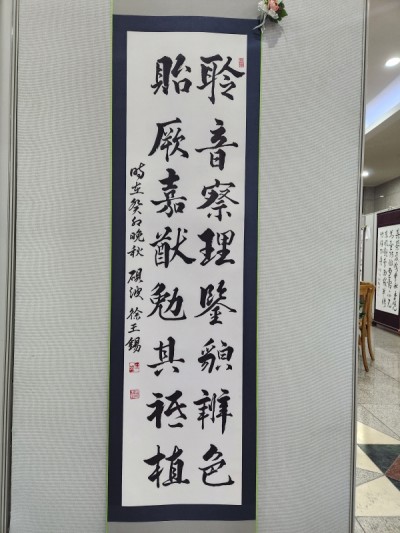 聆音察理鑒貌辨色
貽厥嘉猷勉其祗植
時在癸卯晩秋 徐王錫